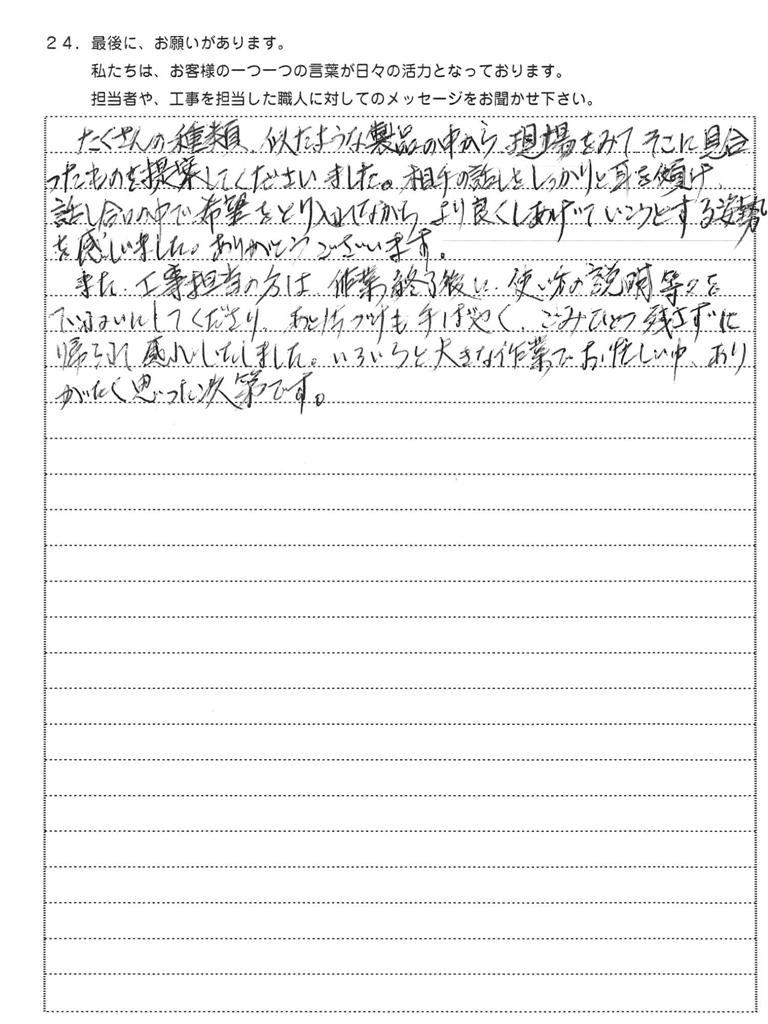 ２４．最後に、お願いがあります。
私たちは、お客様の一つ一つの言葉が日々の活力となっております。
担当者や、工事を担当した職人に対してのメッセージをお聞かせ下さい。
たくさんの種類、似たような製品の中から、現場をみて そこに見合
ったものを提案してくださいました。相手の話しをしっかりと耳を傾け、
話し合いの中で希望をとり入れながら、より良くしあげていこうとする姿勢
を感じました。ありがとうございます。
また、工事担当の方は、作業終了後に、使い方の説明等々を
ていねいにしてくださり、あとかたづけも手ばやく、ごみひとつ残さずに
帰られて感心いたしました。いろいろと大きな作業でお忙しい中、あり
がたく思った次第です。